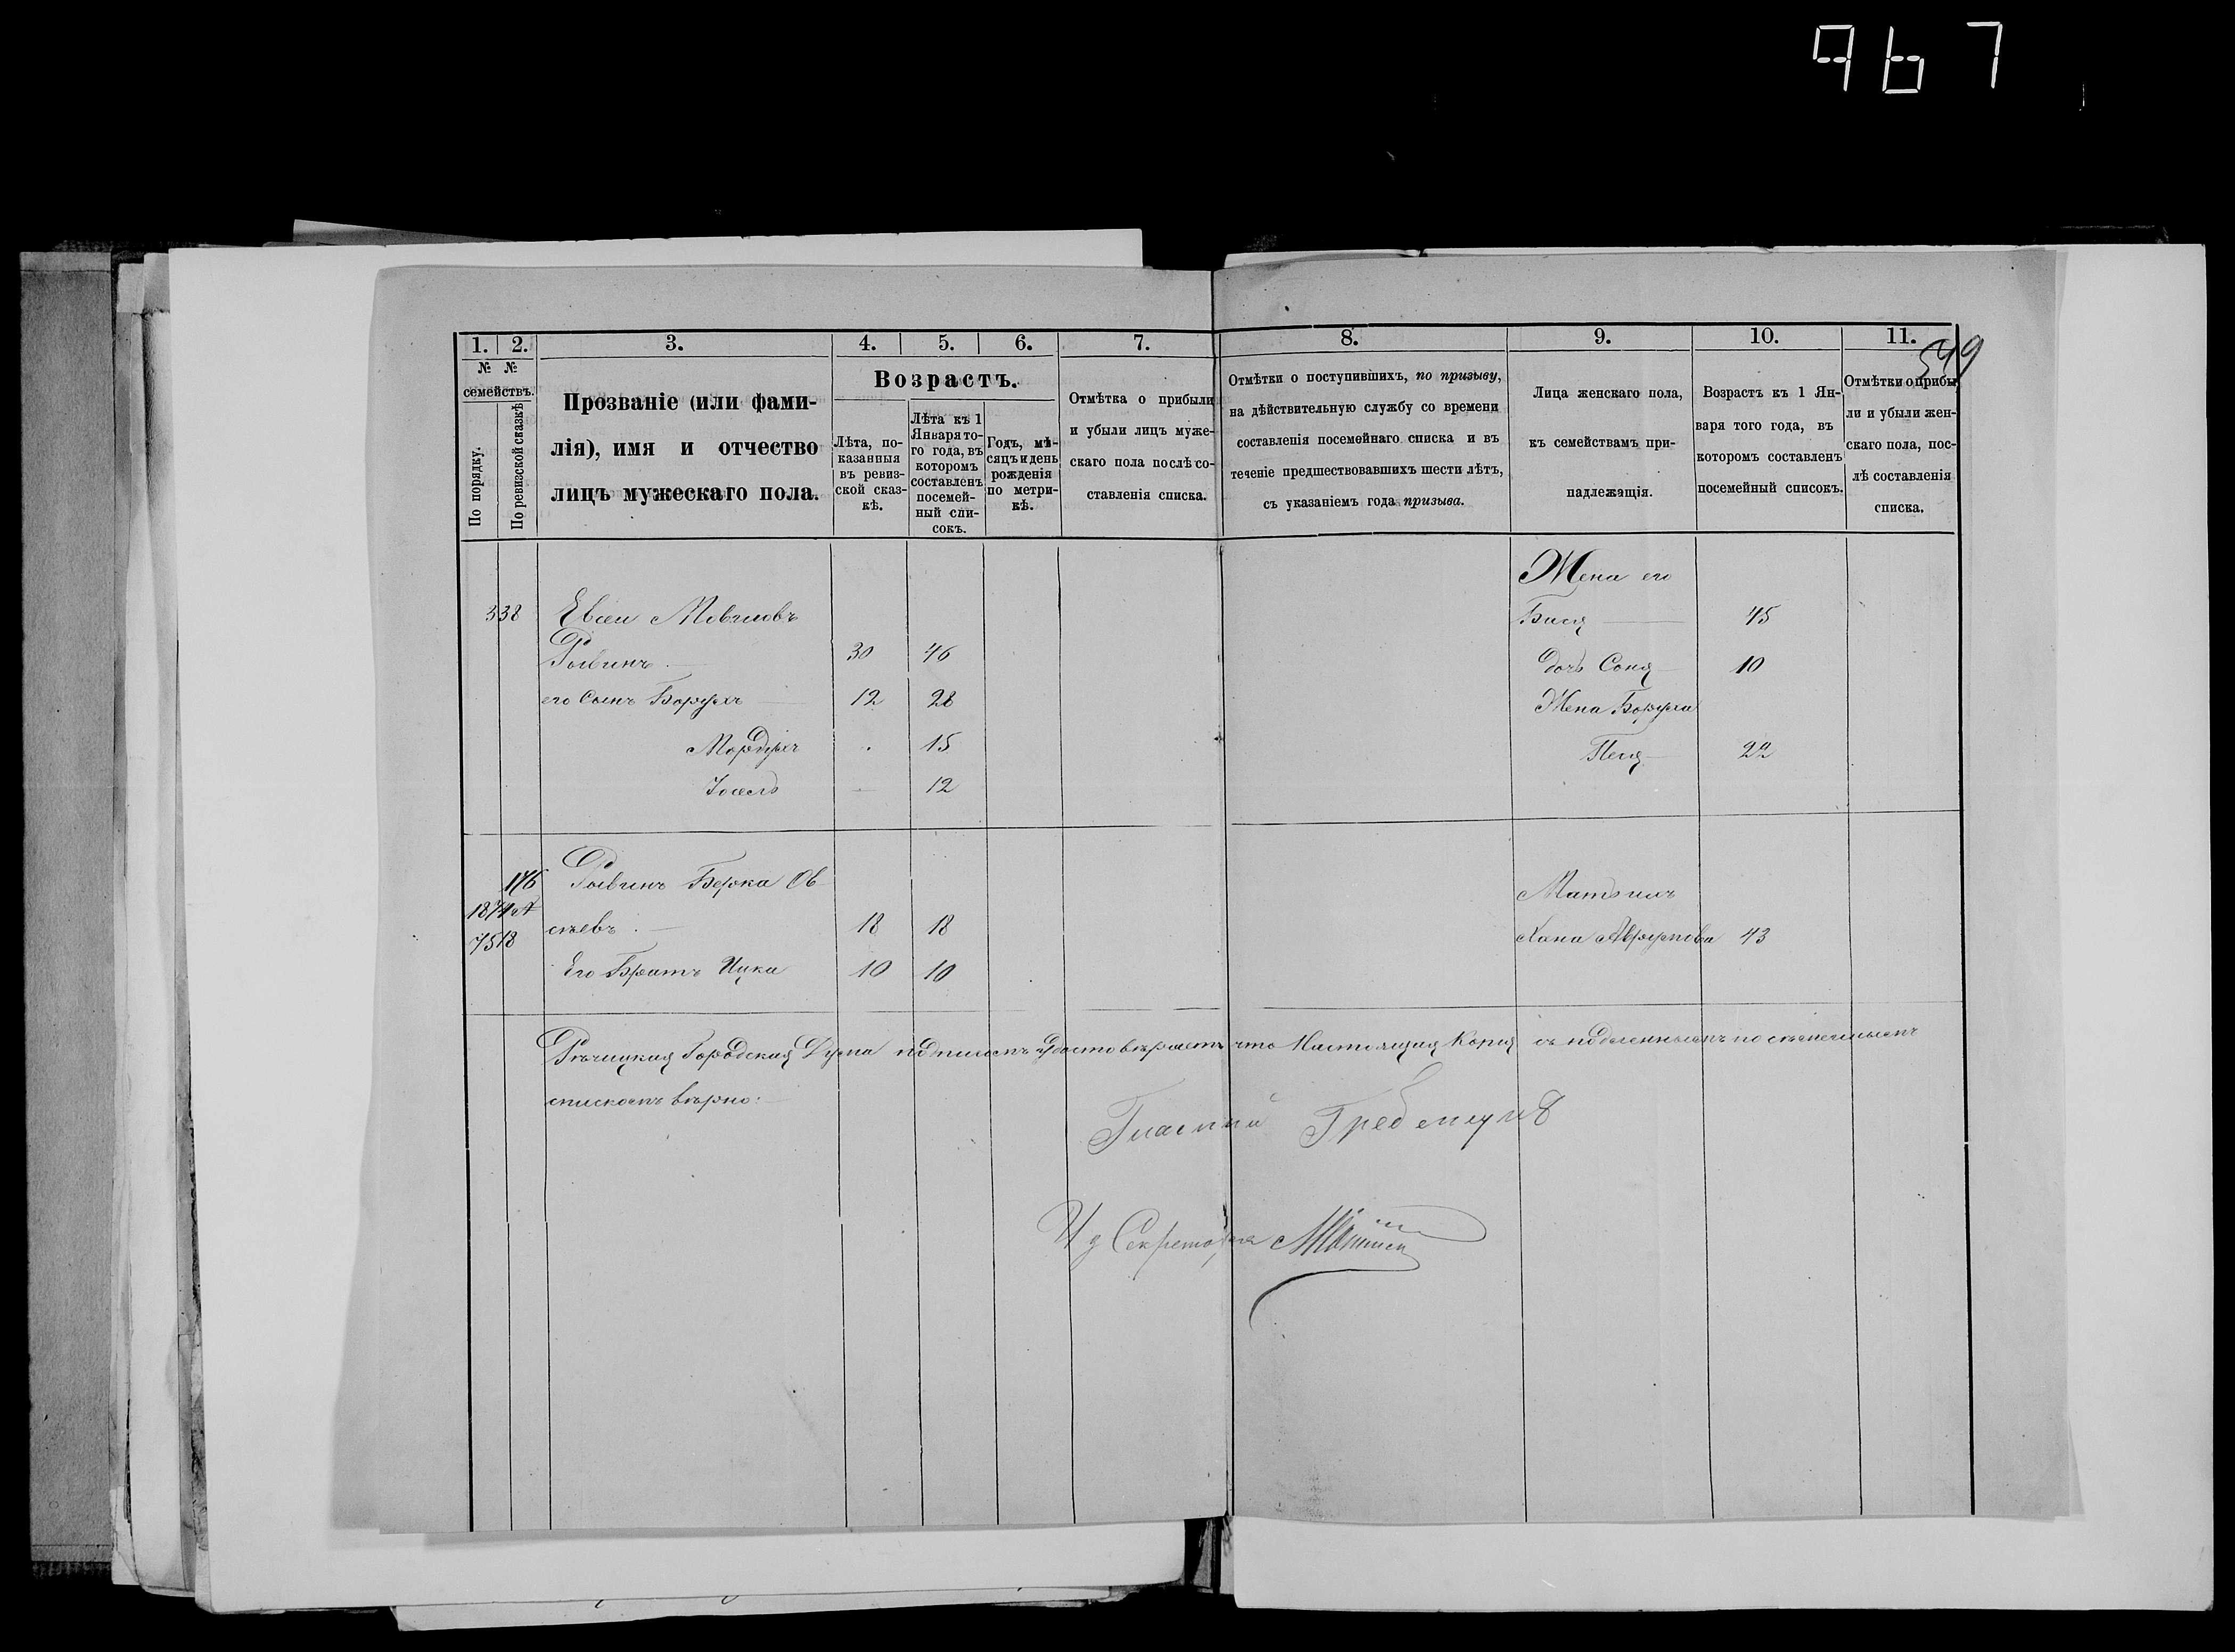 967
549
1. 2. 3. 4. 5. 6. 7. 8. 9. 10. 11.
№ № семействъ.
По порядку.
По ревизской сказкѣ
Прозваніе (или фами-
лія), имя и отчество
лицъ мужескаго пола.
Возрастъ.
Лѣта, по-
казанныя
въ ревиз-
ской сказ-
кѣ.
Лѣта къ 1
Января то-
го года, въ
которомъ
составленъ
посемей-
ный спи-
сокъ.
Годъ, мѣ-
сяцъ и день
рожденія
по метри-
кѣ.
Отмѣтка о прибыли
и убыли лицъ муже-
скаго пола послѣ со-
ставленія списка.
Отмѣтки о поступившихъ, по призыву,
на дѣйствительную службу со времени
составленія посемейнаго списка и въ
теченіе предшествовавшихъ шести лѣтъ,
съ указаніемъ года призыва.
Лица женскаго пола,
къ семействамъ при-
надлежащія.
Возрастъ къ 1 Ян-
варя того года, въ
которомъ составленъ
посемейный списокъ.
Отмѣтки о прибы
ли и убыли жен-
скаго пола, пос-
лѣ составленія
списка.
Жена его
338 Евсеи Мовшовъ Бися 45
Рывинъ 30 46 дочь Соня 10
его Сынъ Борухъ 12 28 Жена Боруха
Мордухъ 15 Песя 22
Іосель 12
176 Рывинъ Берка Ов Мать ихъ
1874
7518 сѣевъ 18 18 Хана Аврумова 43
Его Братъ Ицка 10 10
Рѣчицкая Городская Дума подписомъ удостовѣряетъ что Настоящая Копія съ подленнымъ посемейнымъ
спискомъ вѣрно:
Гласный
И д Секретаря